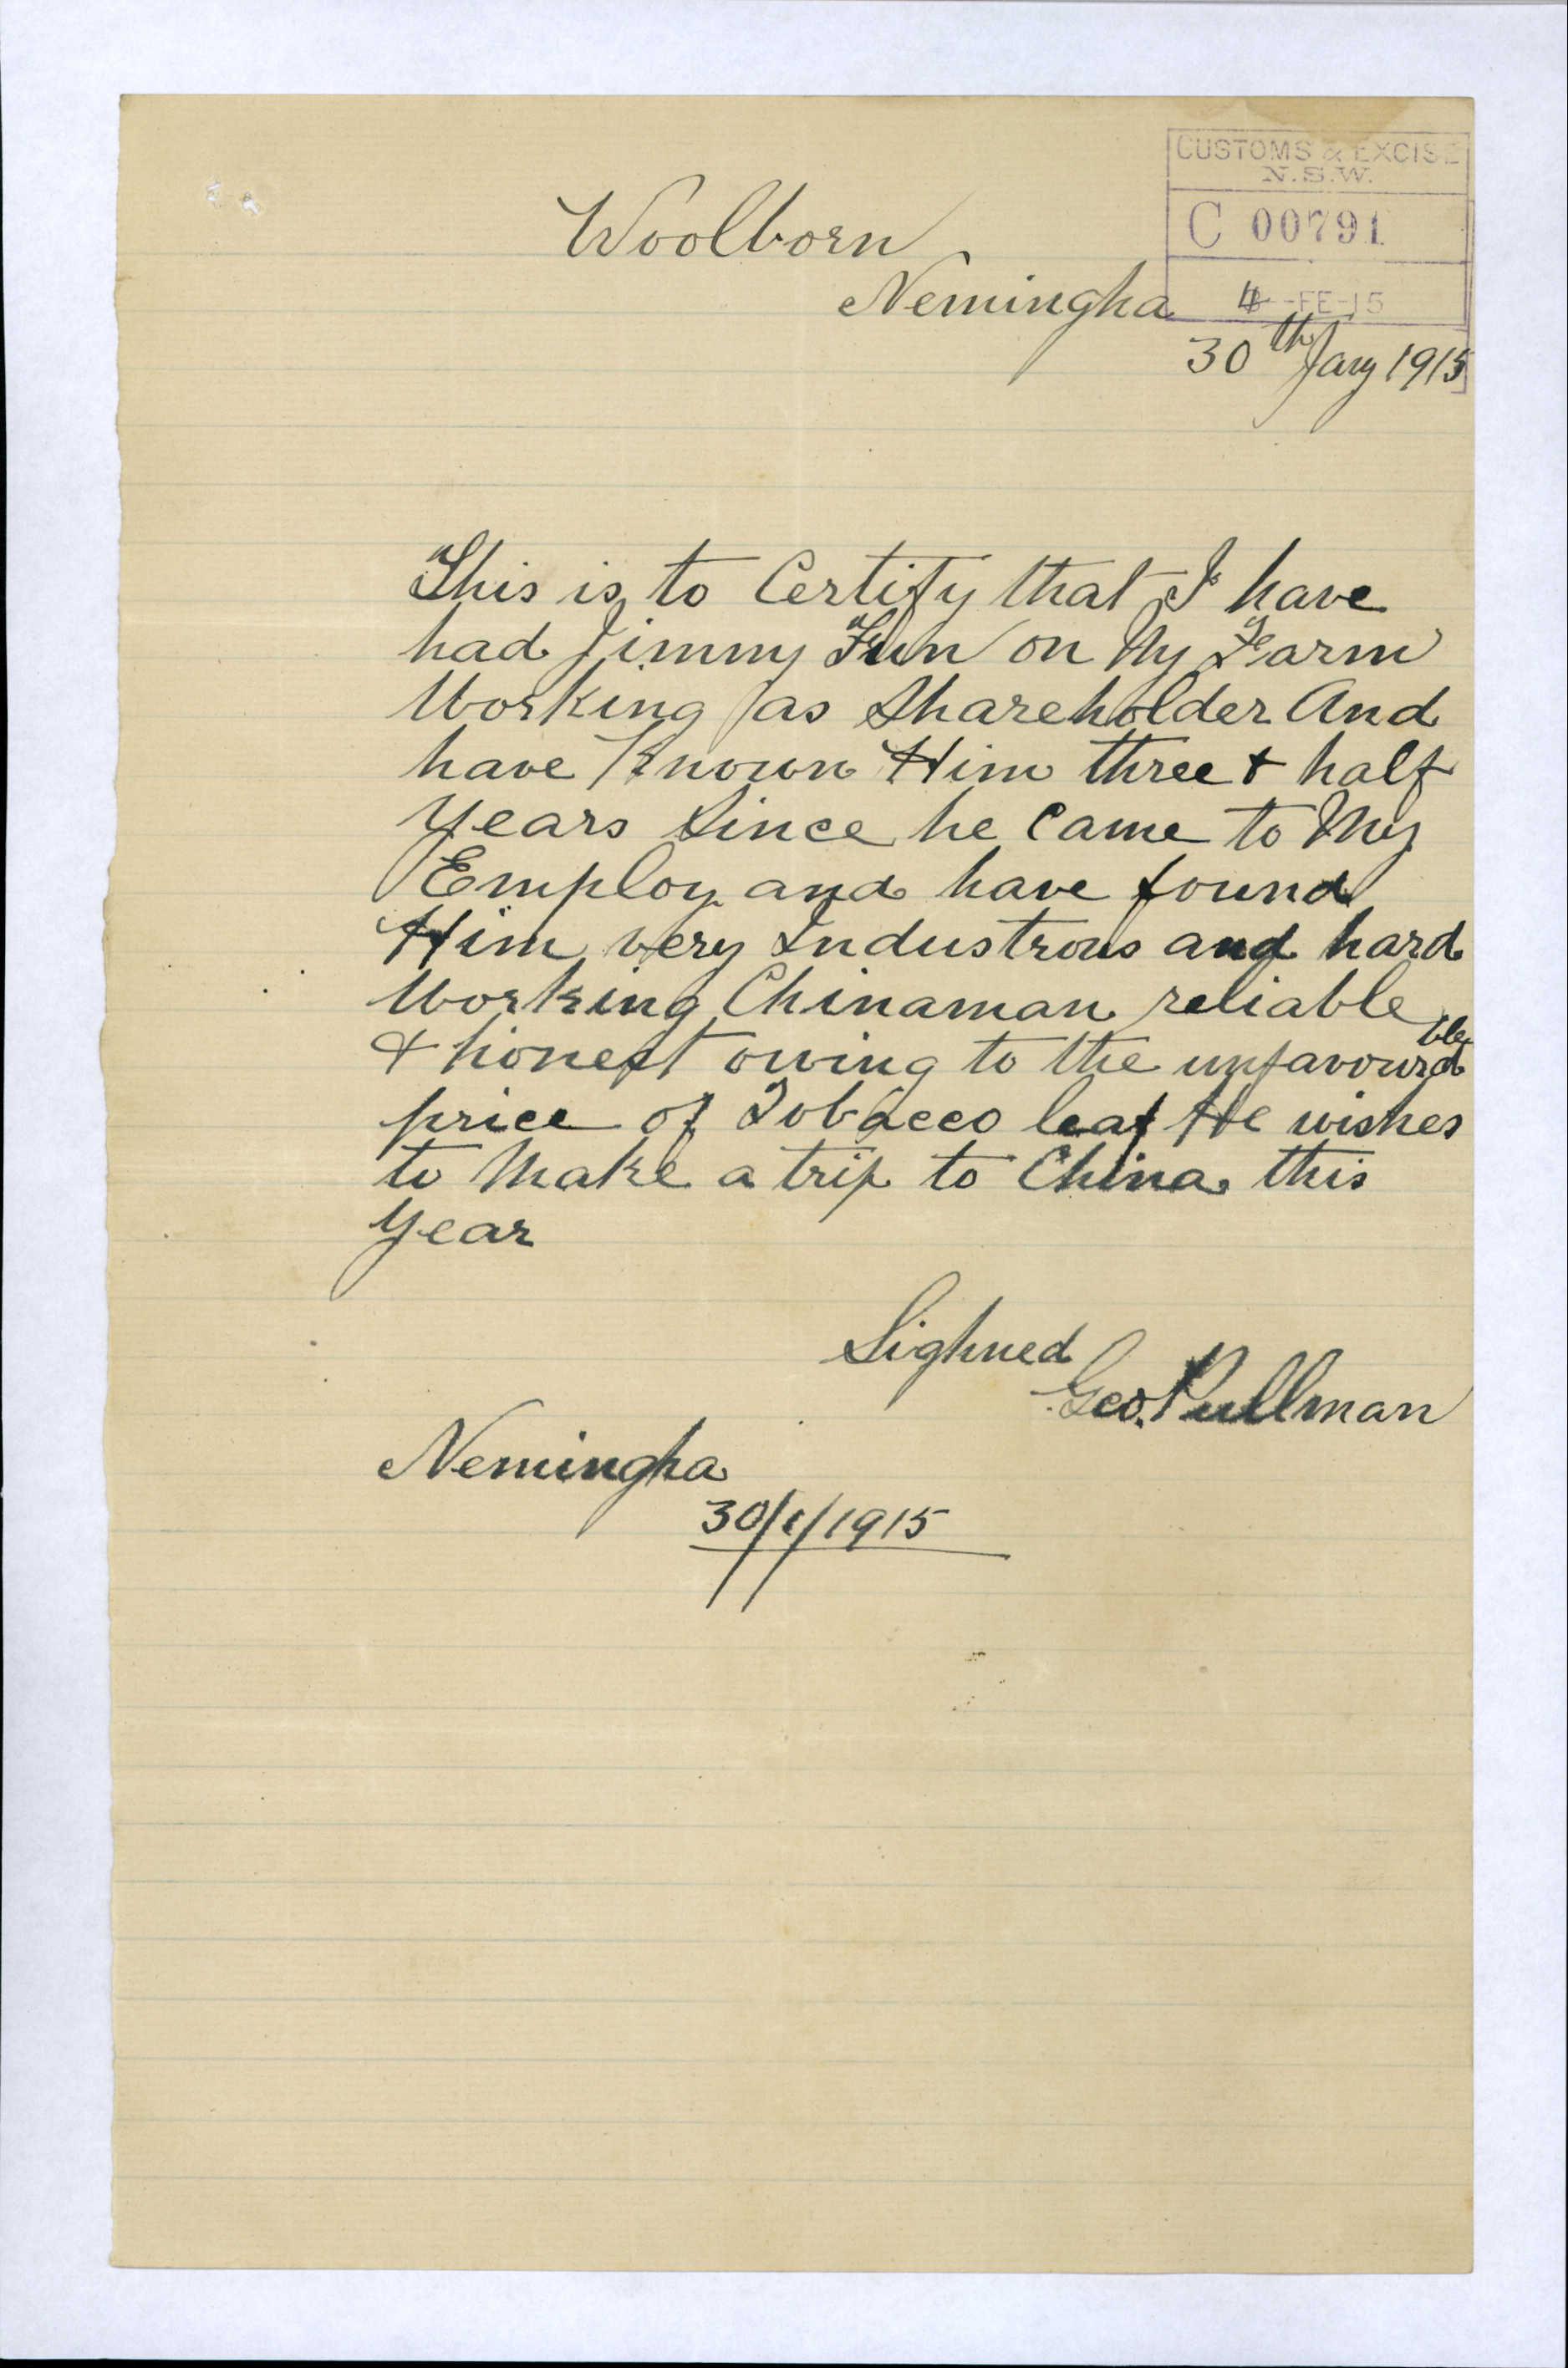 CUSTOMS & EXCISE
N.S.W.
C 00791
4 -FE-15
Woolborn
Nemingha
30th Jany 1915
This is to Certify that I have
had Jimmy Fun on My Farm
Working as Shareholder And
have Known Him three + half
Years Since he Came to My
Employ and have found
Him very Industrous and hard
Working Chinaman reliable
& honest owing to the unfavourdble
price of Tobacco leaf He wishes
to Make a trip to China this
Year
Sighned
Geo. Pullman
Nemingha
30/1/1915